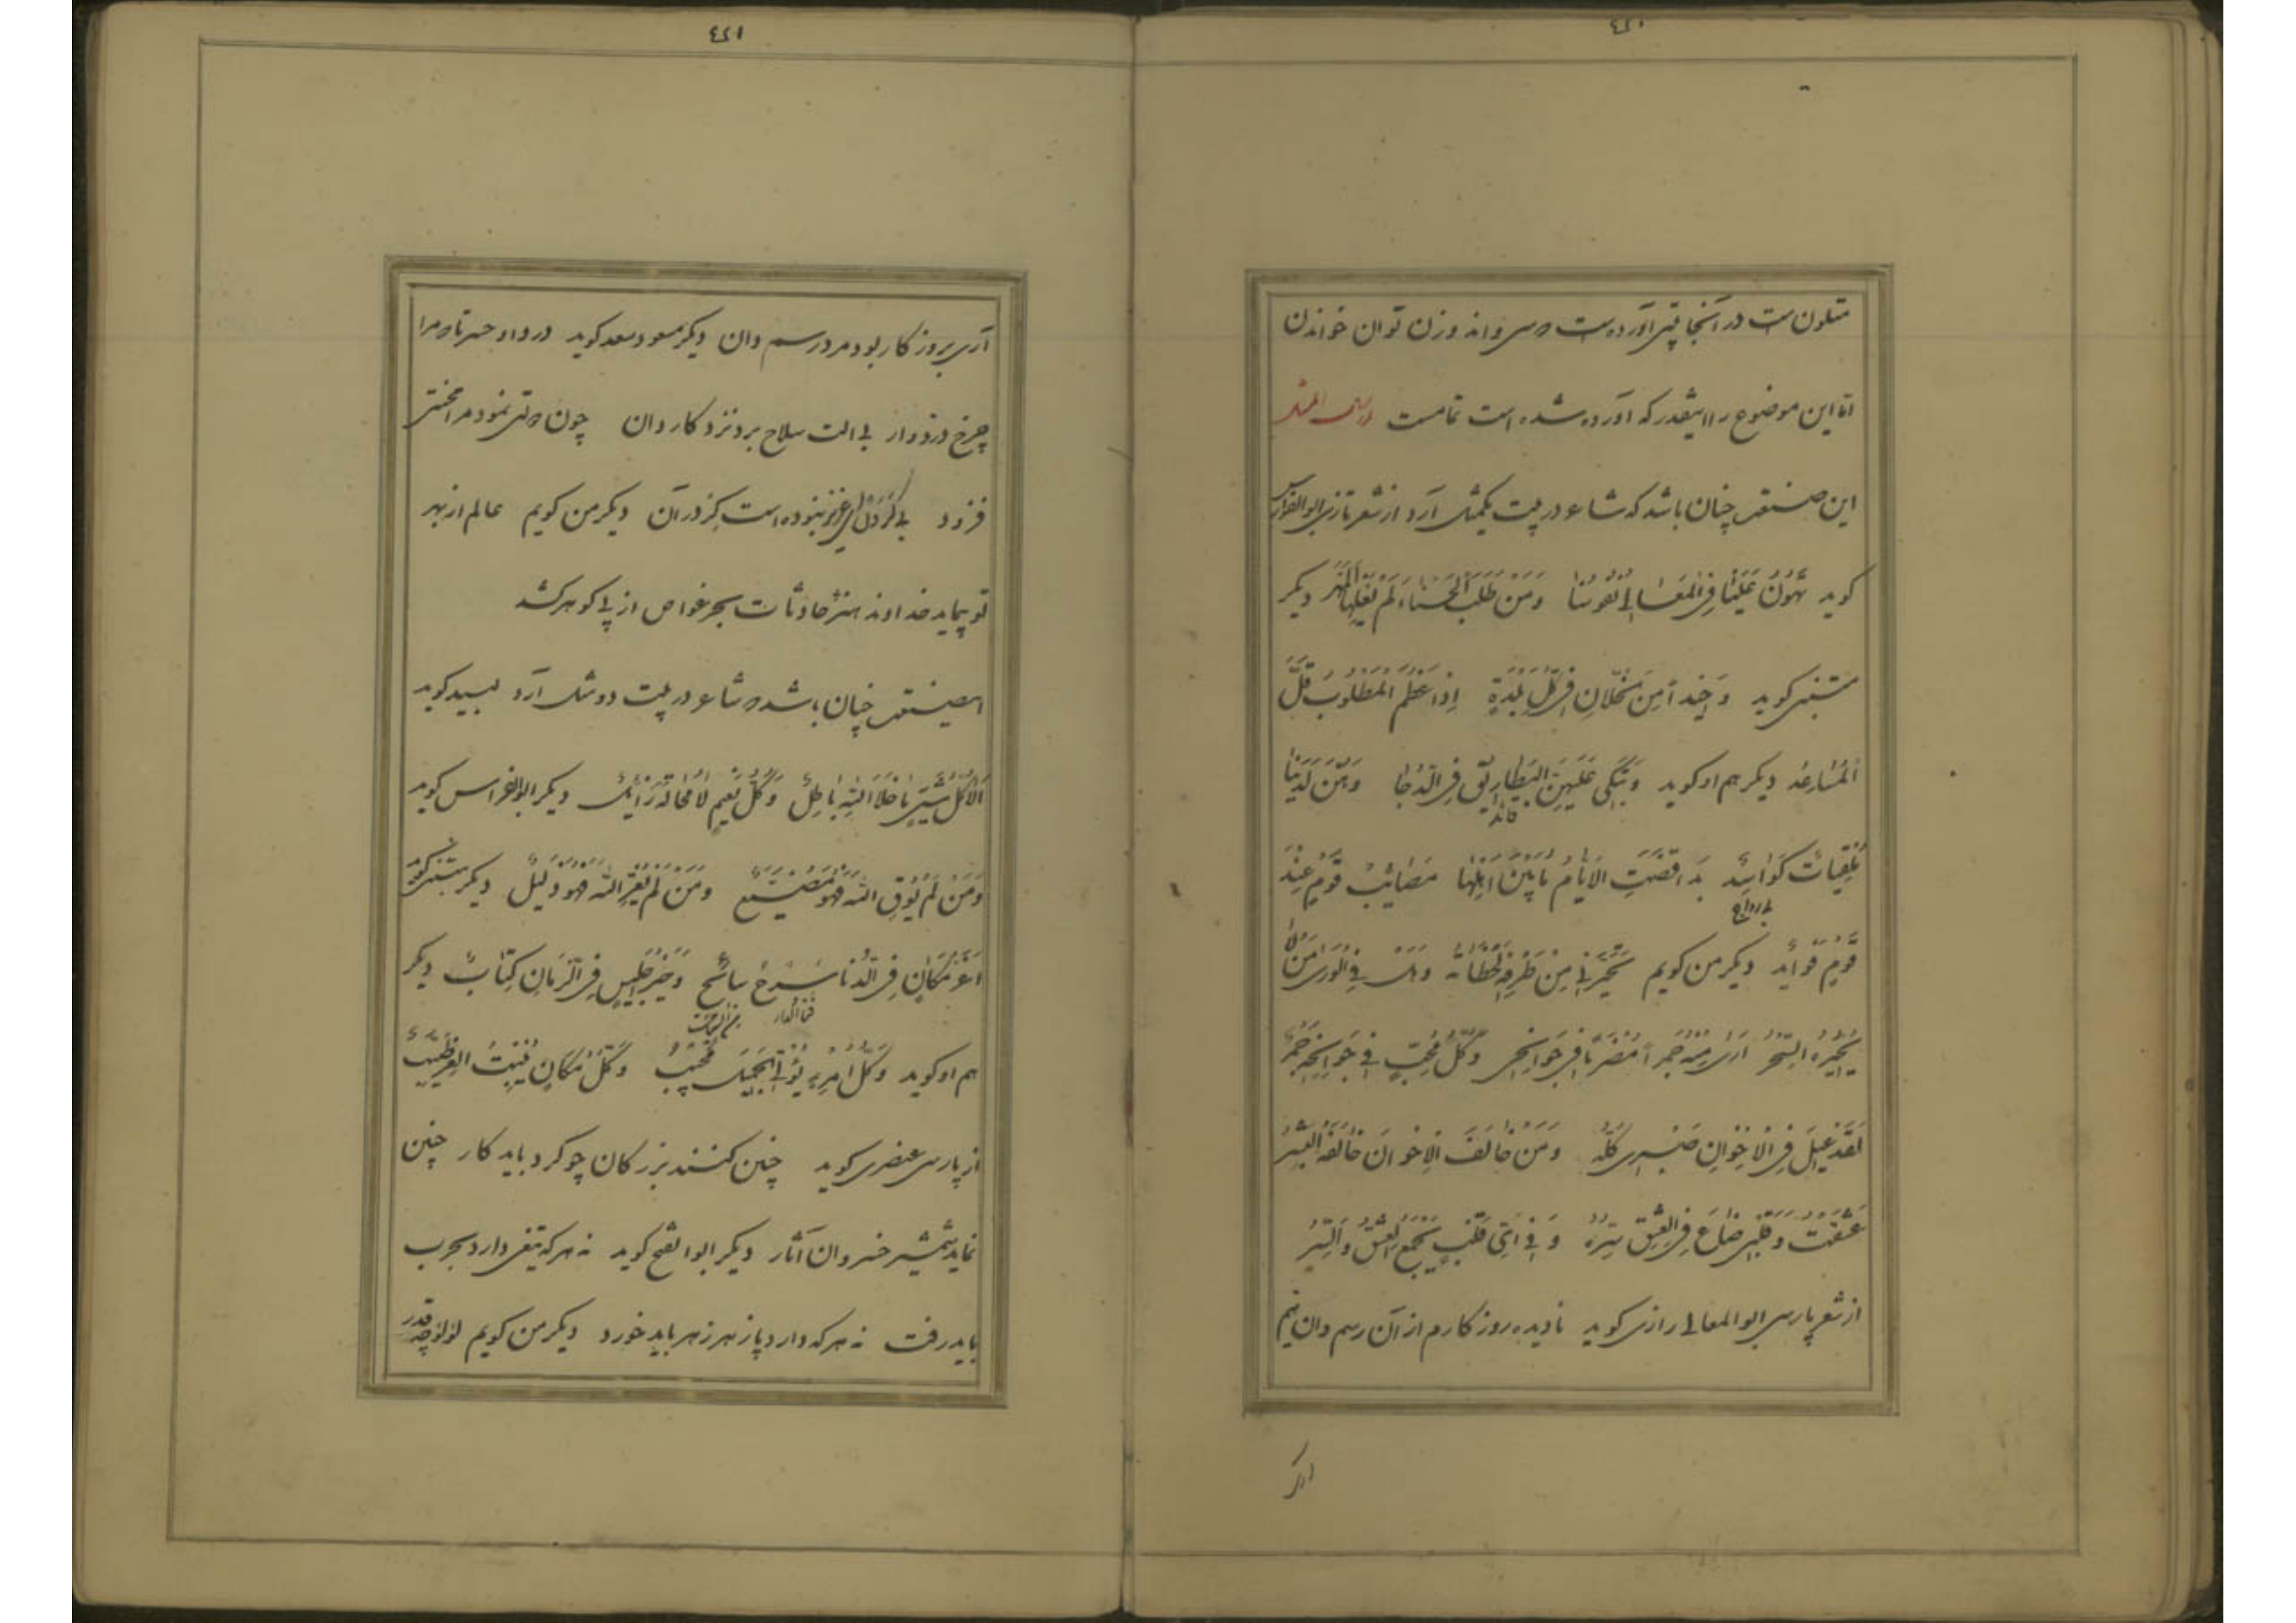 ٤٤٠
متلونست در آنجا بیتی آورده است که سی و اند وزن توان خواندن
اما این موضع را اینقدر که آورده شده است تمامست ارسال المثل
این صنعت چنان باشد که شاعر در بیت یکمثل آرد از شعر تازی ابوالفراس
کوید تَهُونُ عَلَیْنَا فِی الْمَعَالِی نُفُوسُنَا وَمَنْ طَلَبَ الْحَسْنَاءَ لَمْ یُغْلِهَا الْمَهْرُ دیکر
متنبی کوید وَحِیْدٌ مِنَ الْخُلَّانِ فِی کُلِّ بَلْدَةٍ اِذَا عَظُمَ الْمَطْلُوبُ قَلَّ
الْمُسَاعِدُ دیکر هم او کوید وَتَبْکِی عَلَیْهِنَّ الْبَطَارِیْقُ فِی الدُّجَا وَهُنَّ لَدَیْنَا
مُلْقَیَاتٌ کَوَاسِدُ بِذَا قَضَتِ الْاَیَّامُ مَا بَیْنَ اَهْلِهَا مَصَائِبُ قَوْمٍ عِنْدَ
قَوْمٍ فَوَائِدُ دیکر من کویم تَحَیَّرَنِی مِنْ طَرْفِهِ لَحَظَاتُهُ وَهَلْ فِی الْوَرٰی مَنْ لَا
یُحَیِّرُهُ السِّحْرُ اَرٰی مِنْهُ جَمْراً مُضْرَماً فِی جَوَانِحِی وَکُلُّ مُحِبٍّ فِی جَوَانِحِهِ جَمْرُ
لَقَدْ عِیْلَ فِی الْاِخْوَانِ صَبْرِی کُلُّهُ وَمَنْ خَالَفَ الْاِخْوَانَ خَالَفَهُ
عَشِقْتُ وَقَلْبِی ضَاعَ فِی الْعِشْقِ سِرُّهُ وَفِی اَیِّ قَلْبٍ یُجْمَعُ الْعِشْقُ وَالسِّرُّ
از شعر پارسی ابوالمعالی رازی کوید نادیده روزکارم از آن رسم دان نیم
٤٤١
آری بروزکار بود مرد رسم دان دیکر مسعود سعد کوید دردا و حسرتا که مرا
چرخ دزدوار بی الت سلاح بزد نزد کاروان چون دولتی نمود مرا محنتی
فزود بی کردن ای عزیز نبوده است کردران دیکر من کویم عالم از بهر
تو پیماید خداوند هنر حادثات بحر غواص از پی کوهر کشد
این صنعت چنان باشد که شاعر در بیت دو مثل آرد لبید کوید
اَلَا کُلُّ شَیْءٍ مَا خَلَا اللّٰهَ بَاطِلُ وَکُلُّ نَعِیْمٍ لَا مُحَالَةَ زَائِلُ دیکر ابوالفراس کوید
وَمَنْ لَمْ یُوَقِّ اللّٰهُ فَهُوَ مُضَیَّعٌ وَمَنْ لَمْ یُعِزِّ اللّٰهُ فَهُوَ ذَلِیْلٌ دیکر متنبی کوید
اَعَزُّ مَکَانٍ فِی الدُّنَا سَرْجُ سَابِحٍ وَخَیْرُ جَلِیْسٍ فِی الزَّمَانِ کِتَابٌ دیکر
هم او کوید وَکُلُّ امْرِءٍ یُوْلِی الْجَمِیْلَ مُحَبَّبٌ وَکُلُّ مَکَانٍ یُنْبِتُ الْعِزَّ طَیِّبٌ
از پارسی عنصری کوید چنین کنند بزرکان چو کرد باید کار چنین
نماید شمشیر خسروان آثار دیکر ابوالفتح کوید نه هر که تیغی دارد بحرب
باید رفت نه هر که دارد پازهر زهر باید خورد دیکر من کویم لؤلؤ چه قدر